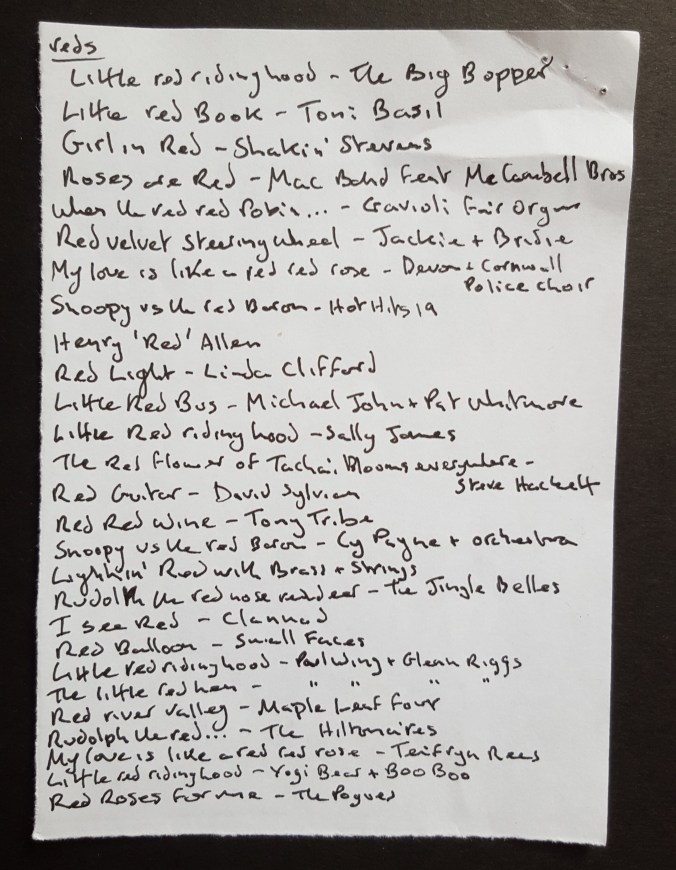 reds
Little red riding hood - The Big Bopper
Little red Book - Toni Basil
Girl in Red - Shakin' Stevens
Roses are Red - Mac Band Feat McCambell Bros
When the red red Robin... - Gavioli Fair Organ
Red velvet steering wheel - Jackie + Bridie
My love is like a red red rose - Devon + Cornwall
Police choir
Snoopy vs the red Baron - Hot Hits 19
Henry 'Red' Allen
Red Light - Linda Clifford
Little Red Bus - Michael John + Pat Whitmore
Little Red riding hood - Sally James
The Red flower of Tachai Blooms everywhere -
Steve Hackett
Red Guitar - David Sylvian
Red Red Wine - Tony Tribe
Snoopy vs the red Baron - Cy Payne + orchestra
Lightnin' Red with Brass + Strings
Rudolph the red nose reindeer - The Jingle Belles
I see Red - Clannad
Red Balloon - Small Faces
Little red riding hood - Paul Wing + Glenn Riggs
The little red hen - " " " "
Red river valley - Maple Leaf Four
Rudolph the red... - The Hiltonaires
My love is like a red red rose - Teifryn Rees
Little red riding hood - Yogi Bear + Boo Boo
Red Roses for me - The Pogues